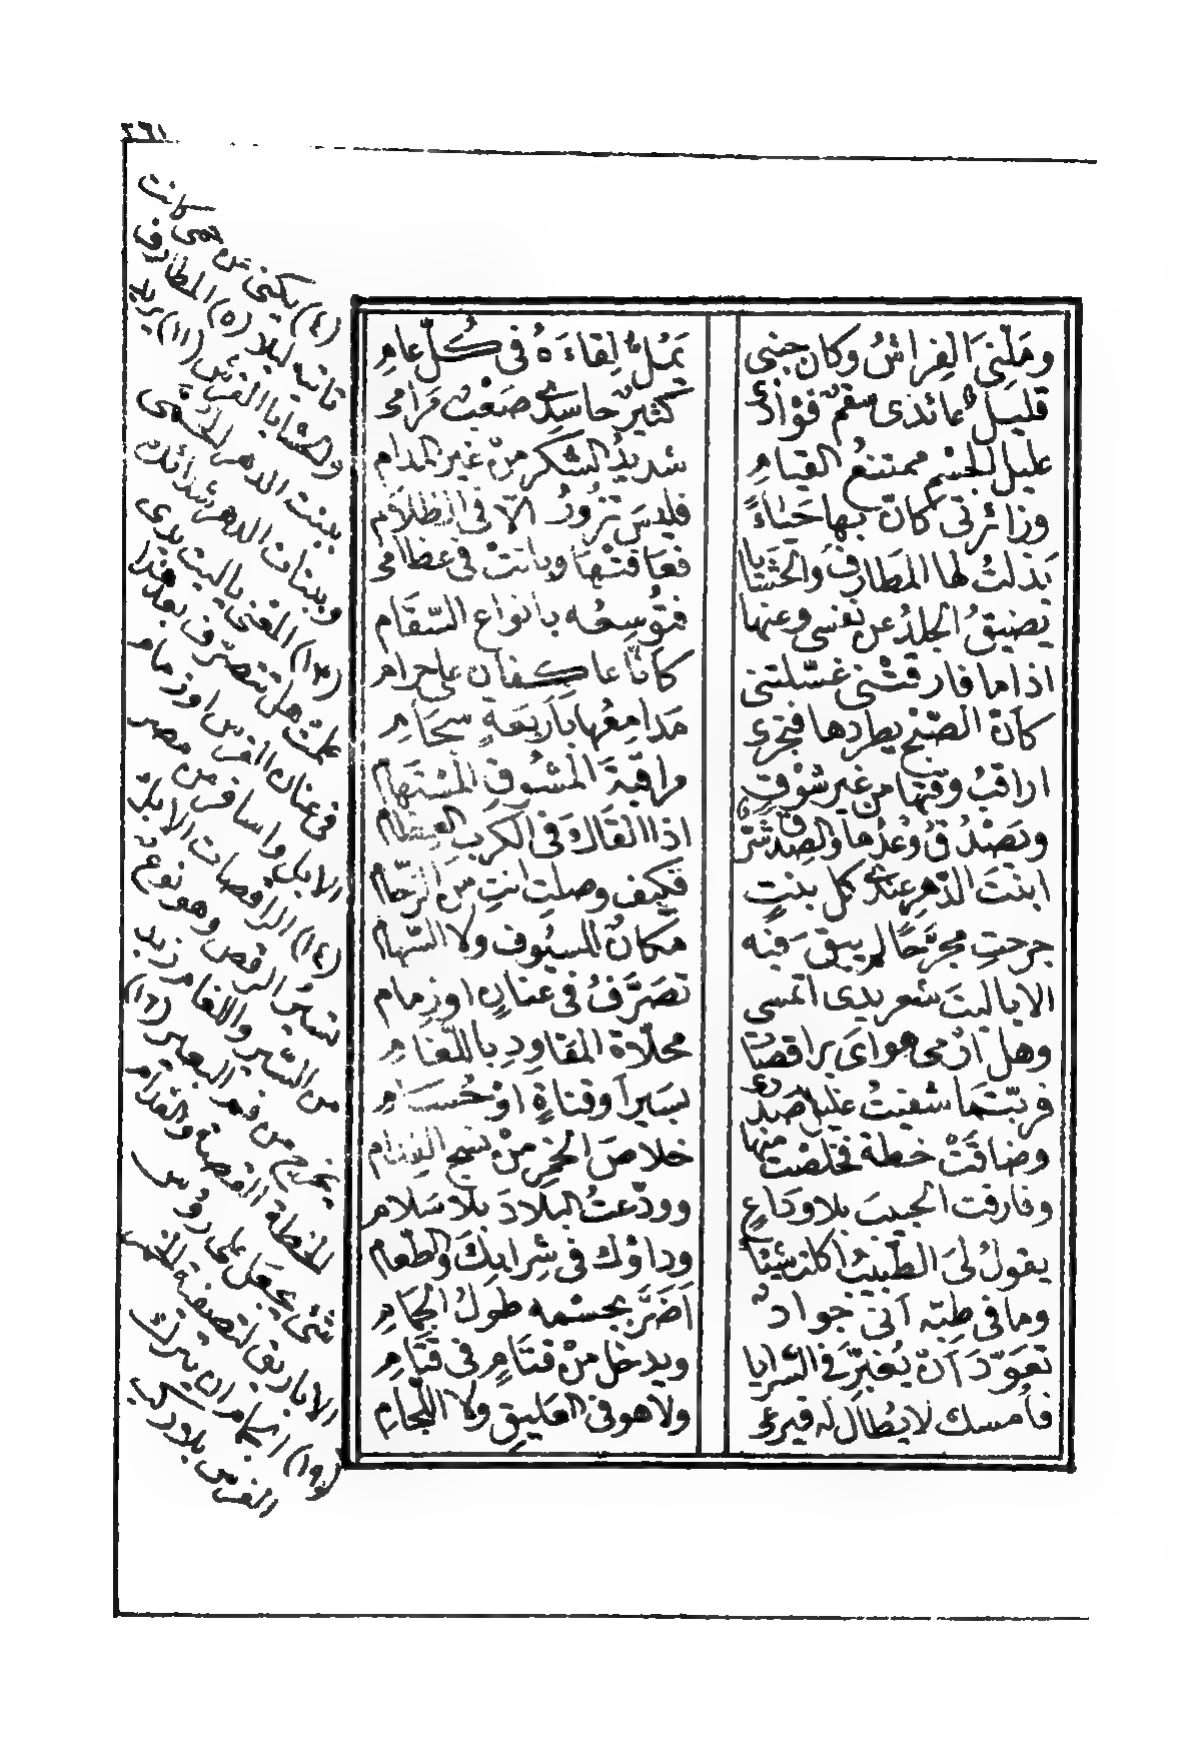 ٢٦١
وملّني الفراشُ وكان جنبى يَمُلُّ لِقاءَهُ فى كُلّ عامِ
قليلٌ عائدى سقمٌ فؤادى كثيرٌ حاسدى صَعْبٌ مَرَامى
عليل الجسْم ممتنعُ القيامِ شديدُ السُّكر منْ غير المدام
وزائرتى كانّ بها حَيَاءً فليسَ تزُورُ الّا فى الظلَامِ
بَذلتُ لها المَطَارفَ والحَشَايا فعَافَتْهَا وباتتْ فى عظامى
تضيقُ الجلدُ عن نفسى وعنها فتُوسِعُه بانواع السّقَام
اذا ما فارقتْنى غسّلتنى كانّا عاكِفان على حرام
كانّ الصّبح يطردها فتجرى مَدامِعُها بأربَعَةٍ سِجَامِ
اراقبُ وقتها من غير شوْقٍ مراقبةَ المَشُوق المُسْتَهام
وَيَصْدُقُ وَعْدُها والصّدق شرٌّ اذا القاكَ فى الكُرَبِ العِظام
ابنتَ الدّهرِ عندى كل بنتٍ فكيف وصلتِ انتِ منَ الزّحام
جرحتِ مجرَّحًا لم يبق فيه مكانٌ للسيُوف ولا السّهام
الا يا ليتَ شعر يدى اتمسى تصَرَّفُ فى عنانٍ او زمام
وهل ارمى هواىَ براقصاتٍ محلّاة المقاودِ باللّغامِ
فربّتما شفيتُ غليل صدرى بسَيرٍ او قناةٍ او حُسامِ
وضاقتْ خطة فخلصْتُ منها خلاصَ الخمرِ منْ نسج الفِدام
وفارقت الحبيبَ بلا وَدَاعٍ وودّعتُ البلادَ بلا سَلام
يقولُ لىَ الطّبيبُ اكلت شيئًا وداؤك فى شرابكَ والطّعام
وما فى طبّه أنّى جوادٌ أضَرَّ بجسْمه طولُ الجمامِ
تعَوّدَ أنْ يُغبّرَ فى السّرايا ويدخل منْ قتَامٍ فى قتَامِ
فأُمسك لا يُطالُ له فيرعى ولا هو فى العَليق ولا اللّجامِ
(٤) يكنى عن حمى كانت
تاتيه ليلًا (٥) المطارف
والحشايا الفرش (١١) يريد
ببنت الدهر الحمّى
وبنات الدهر شدائده
(١٣) المعنى يا ليت يدى
علمت هل تتصرّف بعد هذا
فى عنان الفرس او زمام
الابل واسافر من مصر
(١٤) الراقصات الابل
تسيرُ الرقص وهو نوعٌ
من السّير واللغام زبد
يخرج من فم البعير (١٦)
الخطة القصة والفدام
شئ يجعل على رؤس
الاباريق لتصفية الخمر
(١٩) الجمام ان يترك
الفرس بلا ركب